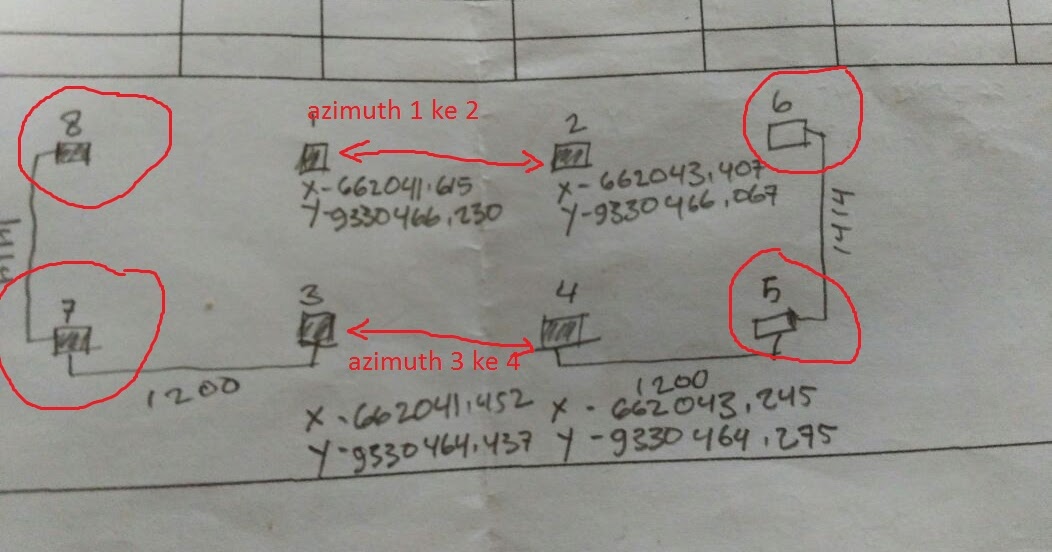 azimuth 1 ke 2
8
1
2
6
X-662041,615
Y-9330466,230
X-662043,407
Y-9330466,067
1414
1414
7
3
4
5
azimuth 3 ke 4
1200
1200
X-662041,452
Y-9330464,437
X-662043,245
Y-9330464,275